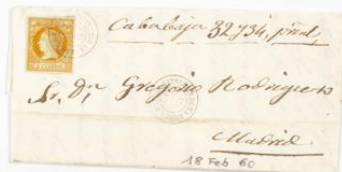 Cababaja 32 y 34, pral,
Sr. Dn Gregorio Rodriguez
Madrid
18 Feb 60